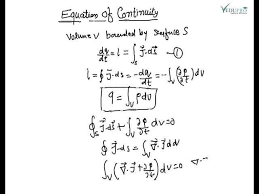 Equation of Continuity
Volume V bounded by Surface S
dq/dt = I = ∮_S J⃗.ds⃗ ①
I = ∮ J⃗.ds = -dq/dt = -∫_V (∂ρ/∂t) dv
q = ∫_V ρdv
∮_S J⃗.ds⃗ + ∫_V ∂ρ/∂t dv=0
∮ J⃗.ds = ∫_V ∇⃗.J⃗ dv
∫_V (∇⃗.J⃗ + ∂ρ/∂t) dv=0